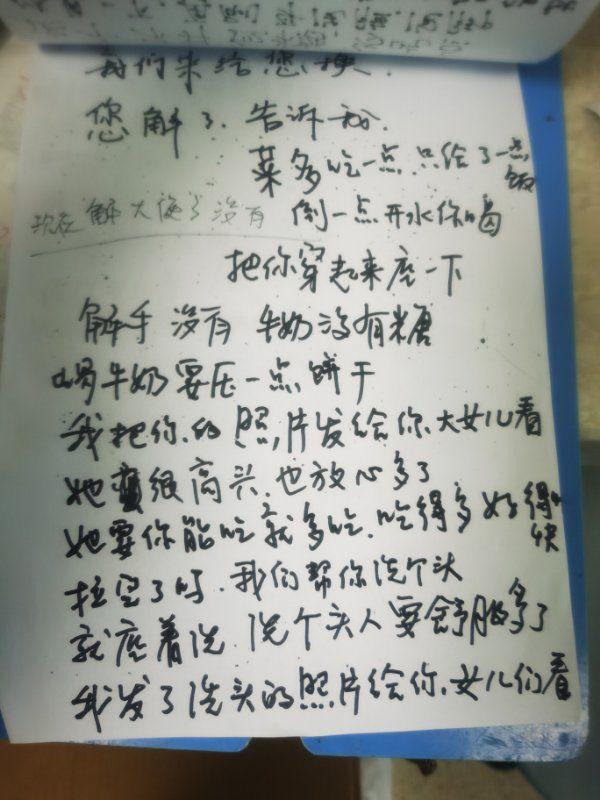 我们来给您换.
您解了.告诉我.
菜多吃一点.只给了一点饭
现在解大便了没有 倒一点开水你喝
把你穿起来座一下
解手没有 牛奶没有糖
喝牛奶要压一点饼干
我把你的照片发给你大女儿看
她很高兴.也放心多了
她要你能吃就多吃.吃得多好得快
拉完了吗.我们帮你洗个头
就座着洗 洗个头人要舒服多了
我发了洗头的照片给你.女儿们看